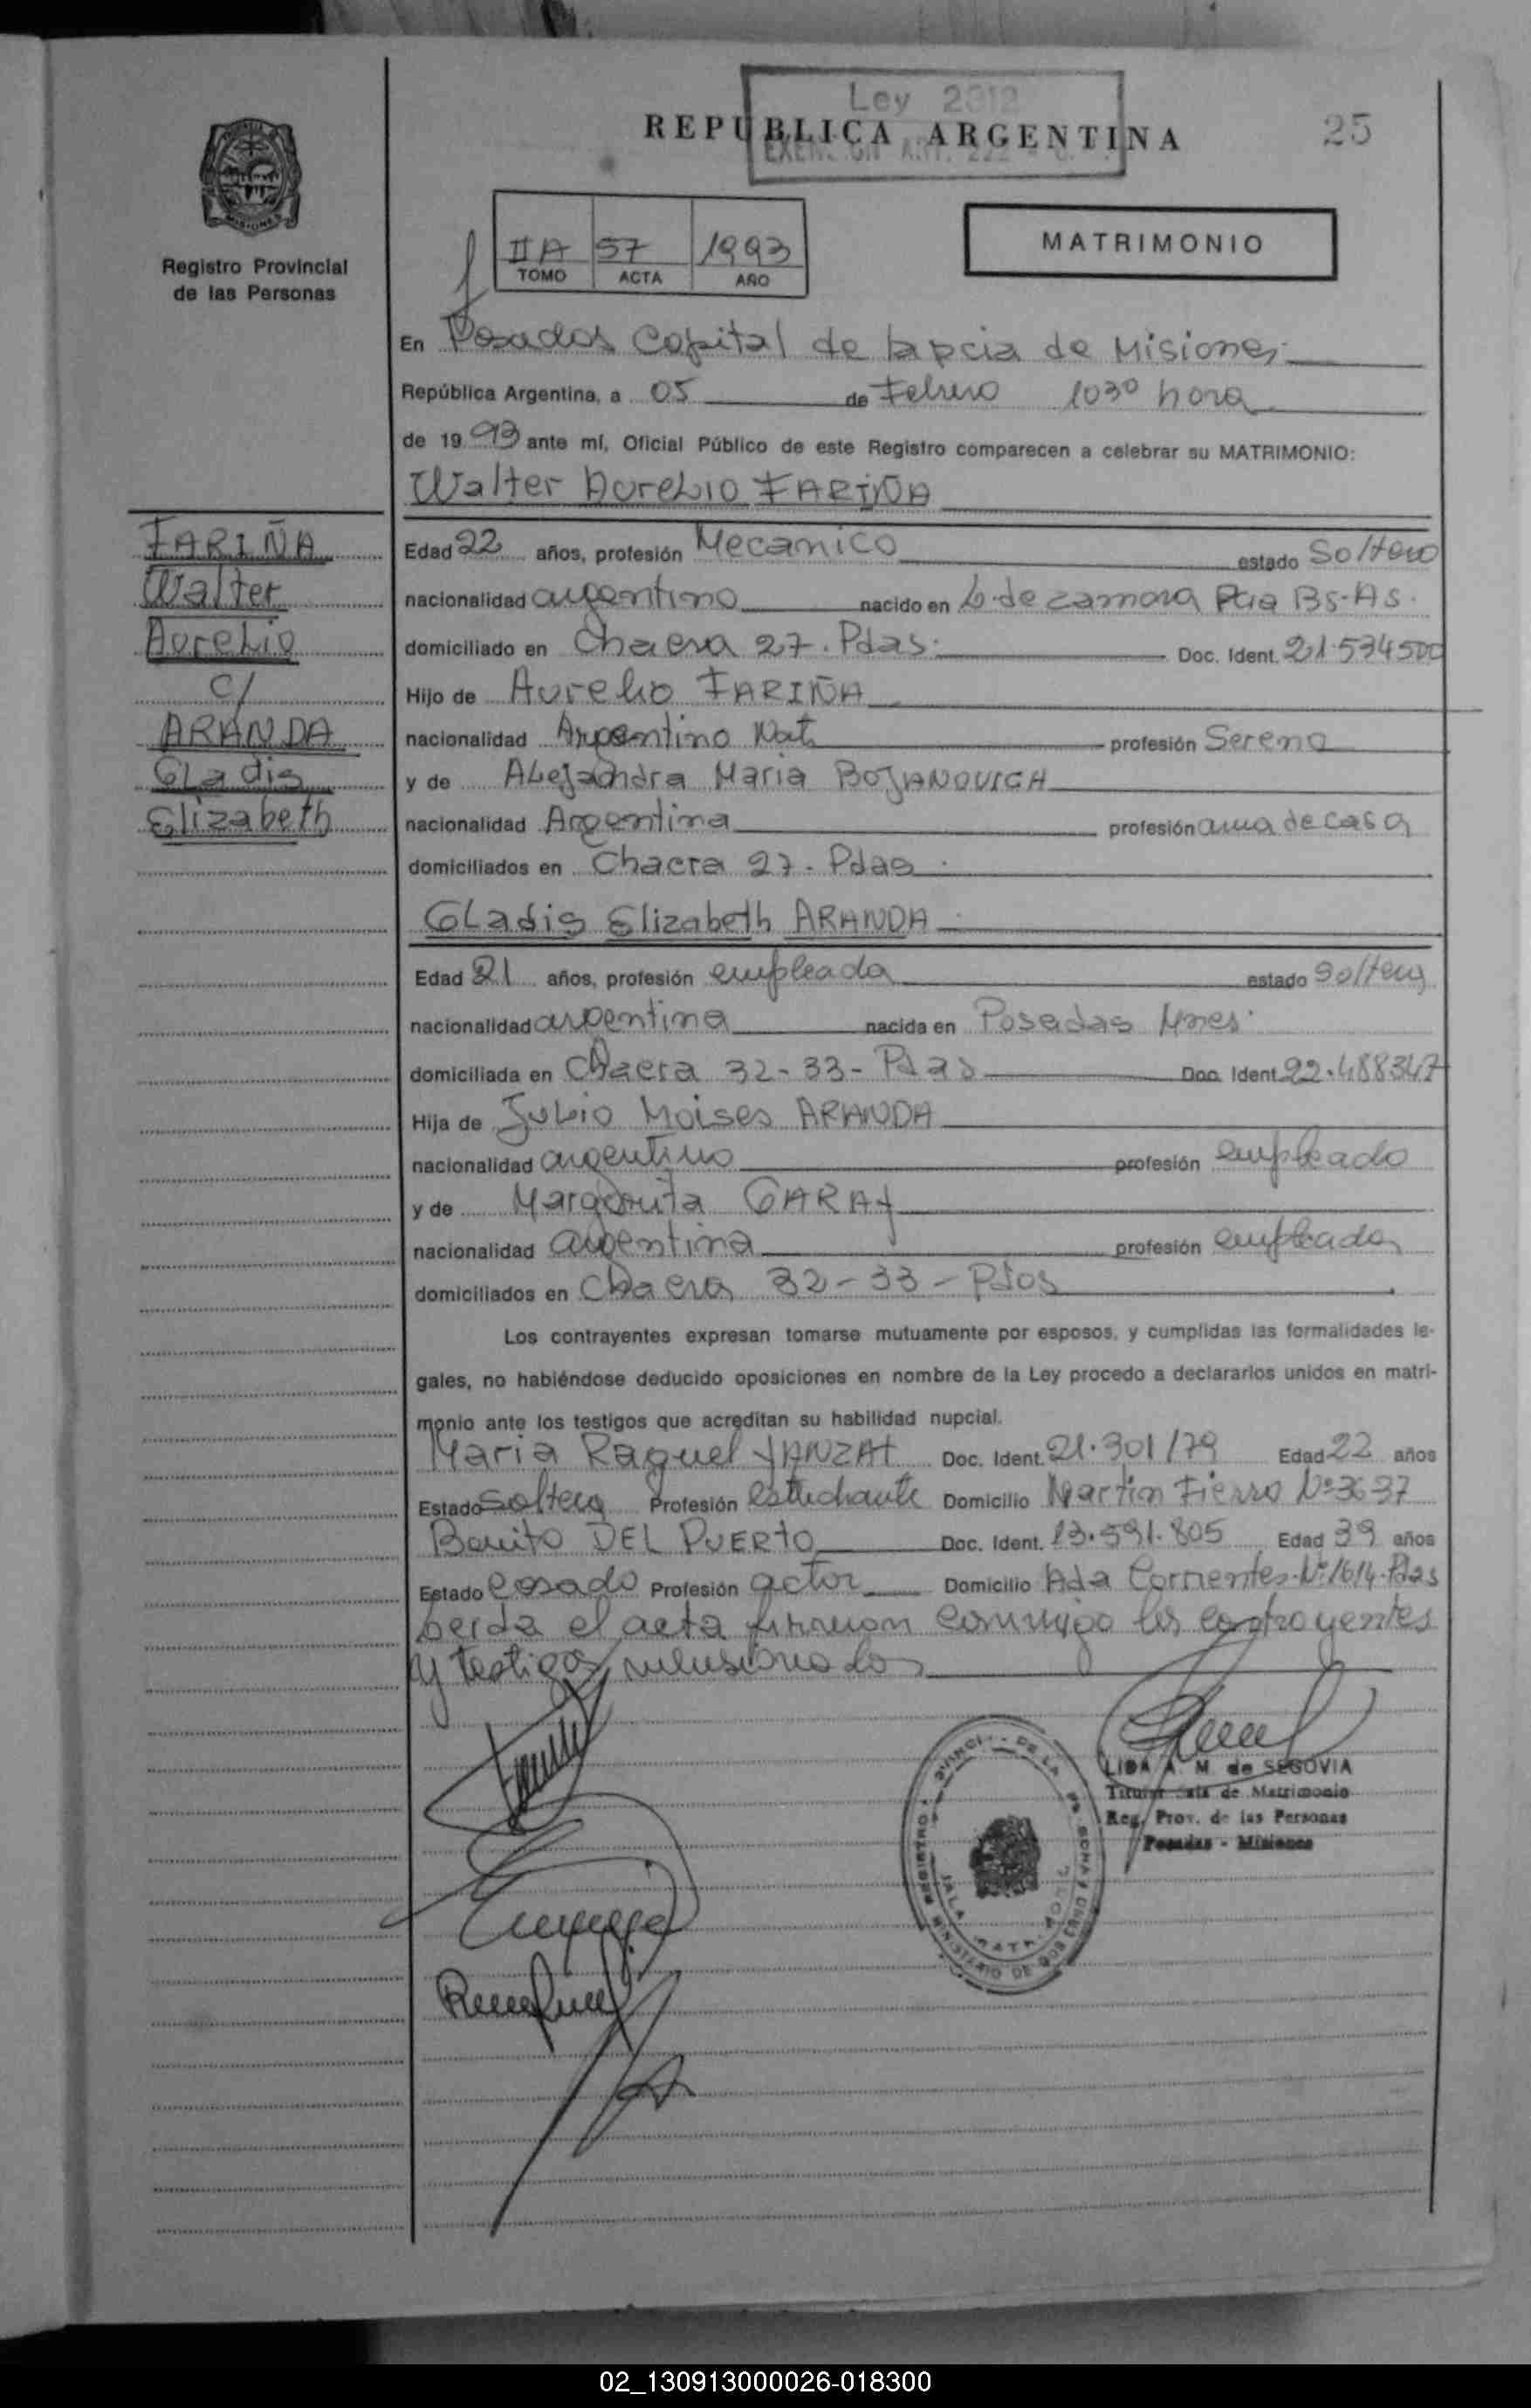 Ley 2012
REPUBLICA ARGENTINA
25
IIA 57 1993
TOMO ACTA AÑO
MATRIMONIO
Registro Provincial
de las Personas
En Posadas Capital de la pcia de Misiones
República Argentina, a 05 de Febrero 1030 hora
de 1993 ante mí, Oficial Público de este Registro comparecen a celebrar su MATRIMONIO:
Walter Aurelio FARIÑA
FARIÑA
Walter
Aurelio
c/
ARANDA
Gladis
Elizabeth
Edad 22 años, profesión Mecanico estado Soltero
nacionalidad argentino nacido en L. de zamora Pcia Bs-As.
domiciliado en Chacra 27. Pdas. Doc. Ident. 21.534500
Hijo de Aurelio FARIÑA
nacionalidad Argentino Nat profesión Sereno
y de Alejandra Maria BOJANOVICH
nacionalidad Argentina profesión ama de casa
domiciliados en Chacra 27. Pdas.
Gladis Elizabeth ARANDA
Edad 21 años, profesión empleada estado soltera
nacionalidad argentina nacida en Posadas Mnes.
domiciliada en Chacra 32-33- Pdas Doc. Ident. 22.488347
Hija de Julio Moises ARANDA
nacionalidad argentino profesión empleado
y de Margarita GARAY
nacionalidad argentina profesión empleada
domiciliados en Chacra 32-33- Pdas
Los contrayentes expresan tomarse mutuamente por esposos, y cumplidas las formalidades le-
gales, no habiéndose deducido oposiciones en nombre de la Ley procedo a declararlos unidos en matri-
monio ante los testigos que acreditan su habilidad nupcial.
Maria Raquel YANZAT Doc. Ident. 21.301179 Edad 22 años
Estado soltera Profesión estudiante Domicilio Martin Fierro Nº 3637
Benito DEL PUERTO Doc. Ident. 13.591.805 Edad 39 años
Estado casado Profesión actor Domicilio Avda Corrientes Nº 1614-Pdas
Leida el acta firmaron conmigo los contrayentes
y testigos mencionados
LIDA A. M. de SEGOVIA
Titular Sala de Matrimonio
Reg. Prov. de las Personas
Posadas - Misiones
02_130913000026-018300